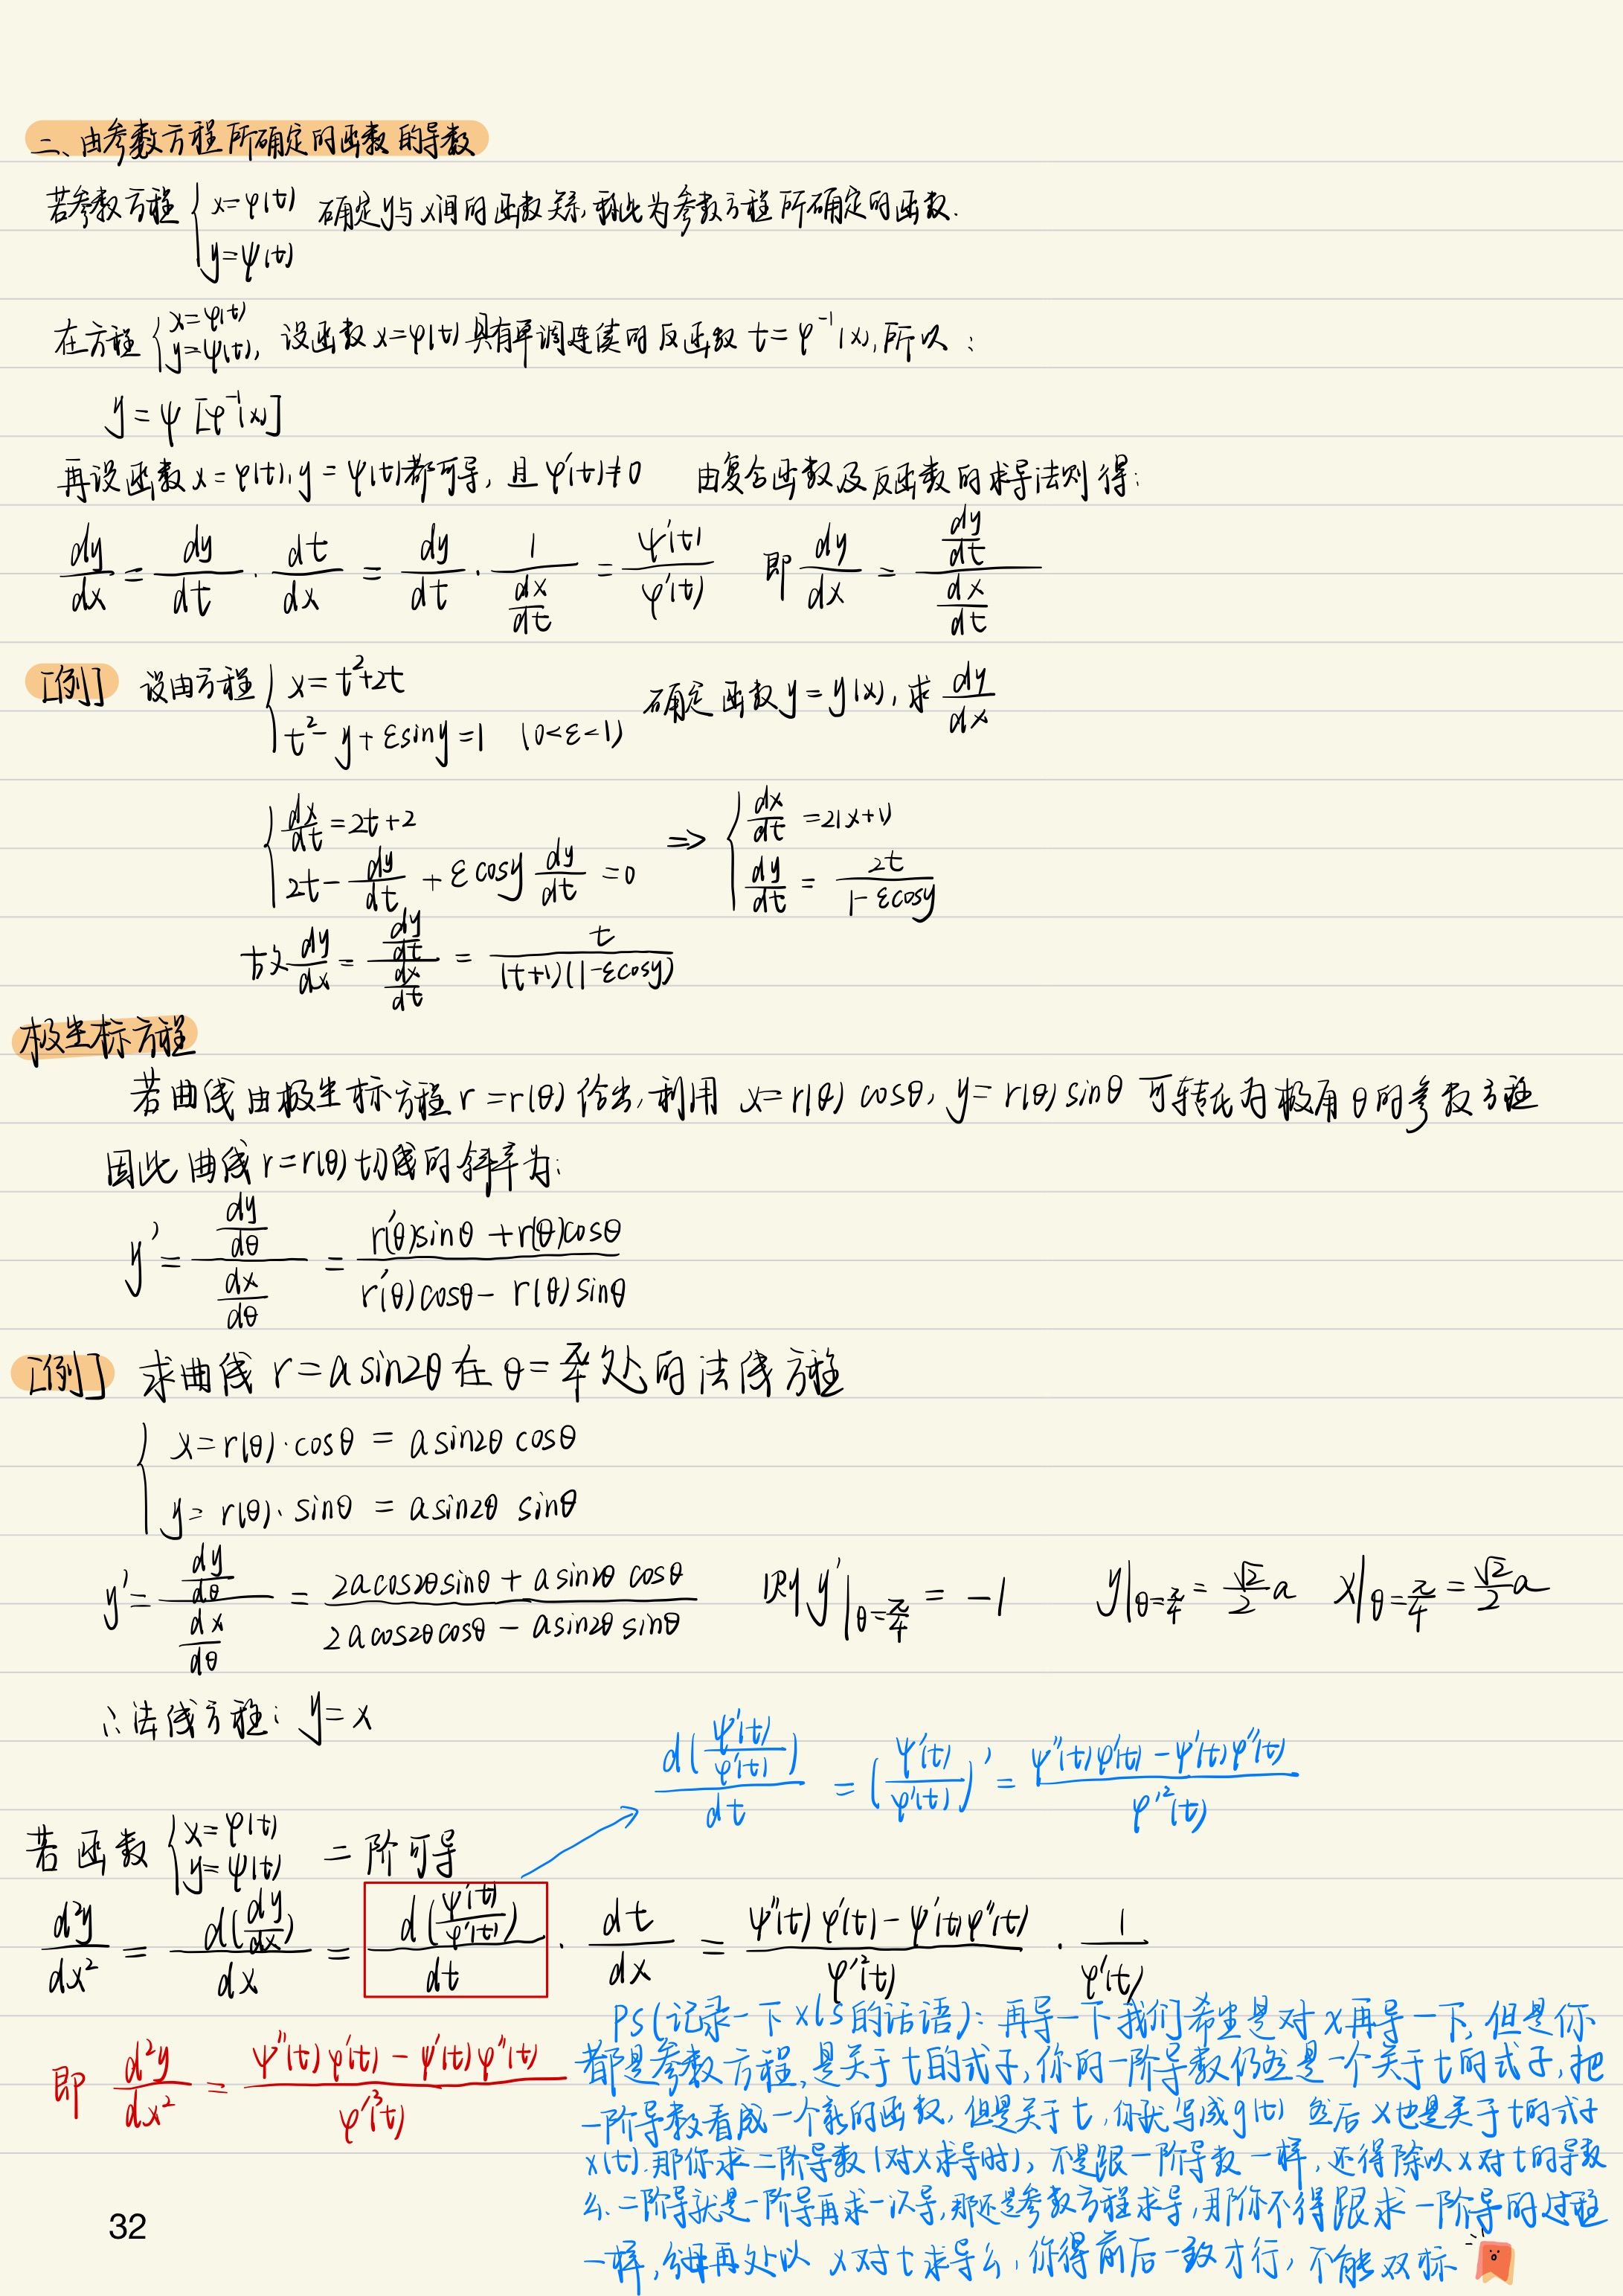 二、由参数方程所确定的函数的导数
若参数方程 { x=φ(t) 确定y与x间的函数关系,称此为参数方程所确定的函数.
y=ψ(t)
在方程 { x=φ(t) y=ψ(t), 设函数x=φ(t)具有单调连续的反函数 t=φ⁻¹(x),所以:
y=ψ[φ⁻¹(x)]
再设函数x=φ(t),y=ψ(t)都可导,且φ'(t)≠0 由复合函数及反函数的求导法则得:
dy/dx = dy/dt · dt/dx = dy/dt · 1/(dx/dt) = ψ'(t)/φ'(t) 即 dy/dx = (dy/dt)/(dx/dt)
[例] 设由方程 { x=t²+2t 确定函数y=y(x),求 dy/dx
t²-y+εsiny=1 (0<ε<1)
{ dx/dt=2t+2 ⇒ { dx/dt=2(x+1)
2t-dy/dt+εcosy dy/dt=0 dy/dt=2t/(1-εcosy)
故 dy/dx = (dy/dt)/(dx/dt) = t/((t+1)(1-εcosy))
极坐标方程
若曲线由极坐标方程r=r(θ)给出,利用 x=r(θ)cosθ, y=r(θ)sinθ 可转化为极角θ的参数方程
因此曲线r=r(θ)切线的斜率为:
y' = (dy/dθ)/(dx/dθ) = (r'(θ)sinθ+r(θ)cosθ)/(r'(θ)cosθ-r(θ)sinθ)
[例] 求曲线 r=asin2θ在θ=π/4处的法线方程
{ x=r(θ)·cosθ=asin2θcosθ
y=r(θ)·sinθ=asin2θ sinθ
y' = (dy/dθ)/(dx/dθ) = (2acos2θsinθ+asin2θcosθ)/(2acos2θcosθ-asin2θsinθ) 则y'|θ=π/4 = -1 y|θ=π/4 = √2/2 a x|θ=π/4 = √2/2 a
∴法线方程: y=x
d(ψ'(t)/φ'(t))/dt = (ψ'(t)/φ'(t))' = (ψ''(t)φ'(t)-ψ'(t)φ''(t))/φ'²(t)
若函数 { x=φ(t) y=ψ(t) 二阶可导
d²y/dx² = d(dy/dx)/dx = d(ψ'(t)/φ'(t))/dt · dt/dx = (ψ''(t)φ'(t)-ψ'(t)φ''(t))/φ'²(t) · 1/φ'(t)
即 d²y/dx² = (ψ''(t)φ'(t)-ψ'(t)φ''(t))/φ'³(t)
PS(记录一下xls的话语):再导一下我们希望是对x再导一下,但是你
都是参数方程,是关于t的式子,你的一阶导数仍然是一个关于t的式子,把
一阶导数看成一个新的函数,但是关于t,你就写成g(t) 然后x也是关于t的式子
x(t).那你求二阶导数(对x求导时),不是跟一阶导数一样,还得除以x对t的导数
么.二阶导就是一阶导再求一次导,那还是参数方程求导,那你不得跟求一阶导的过程
一样,分母再处以 x对t求导么,你得前后一致才行,不能双标
32